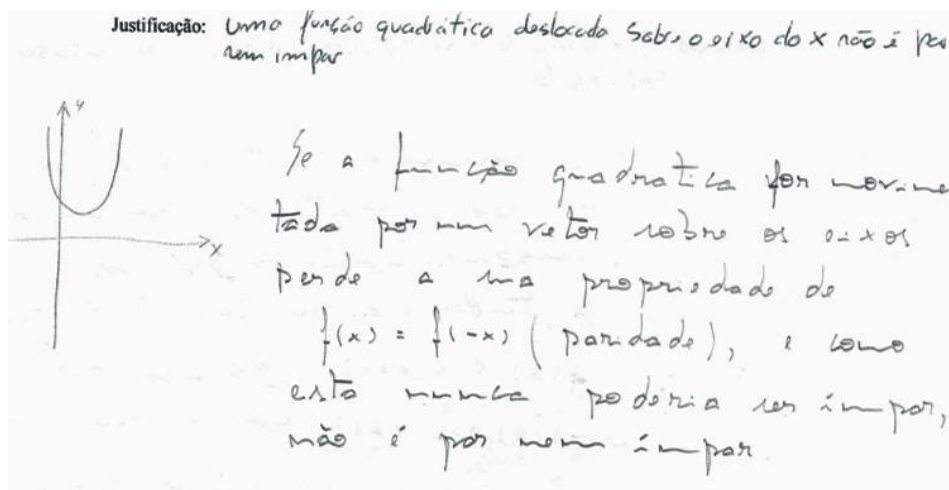 Justificação: uma função quadrática deslocada sobre o eixo do x não é par
nem impar
y
Se a função quadratica for movime
tada por um vetor sobre os eixos
x
perde a sua propriedade de
f(x) = f(-x) (paridade), e como
esta nunca poderia ser ímpar,
não é par nem ímpar